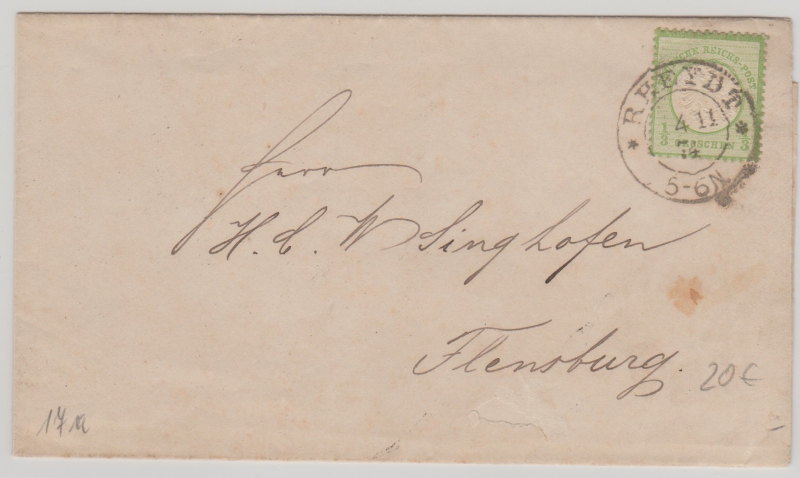 DEUTSCHE REICHS-POST
1/3 GROSCHEN 3
* RHEYDT *
4 11
74
5-6N
Herrn
H. C. W Singhofen
Flensburg.
20€
17a